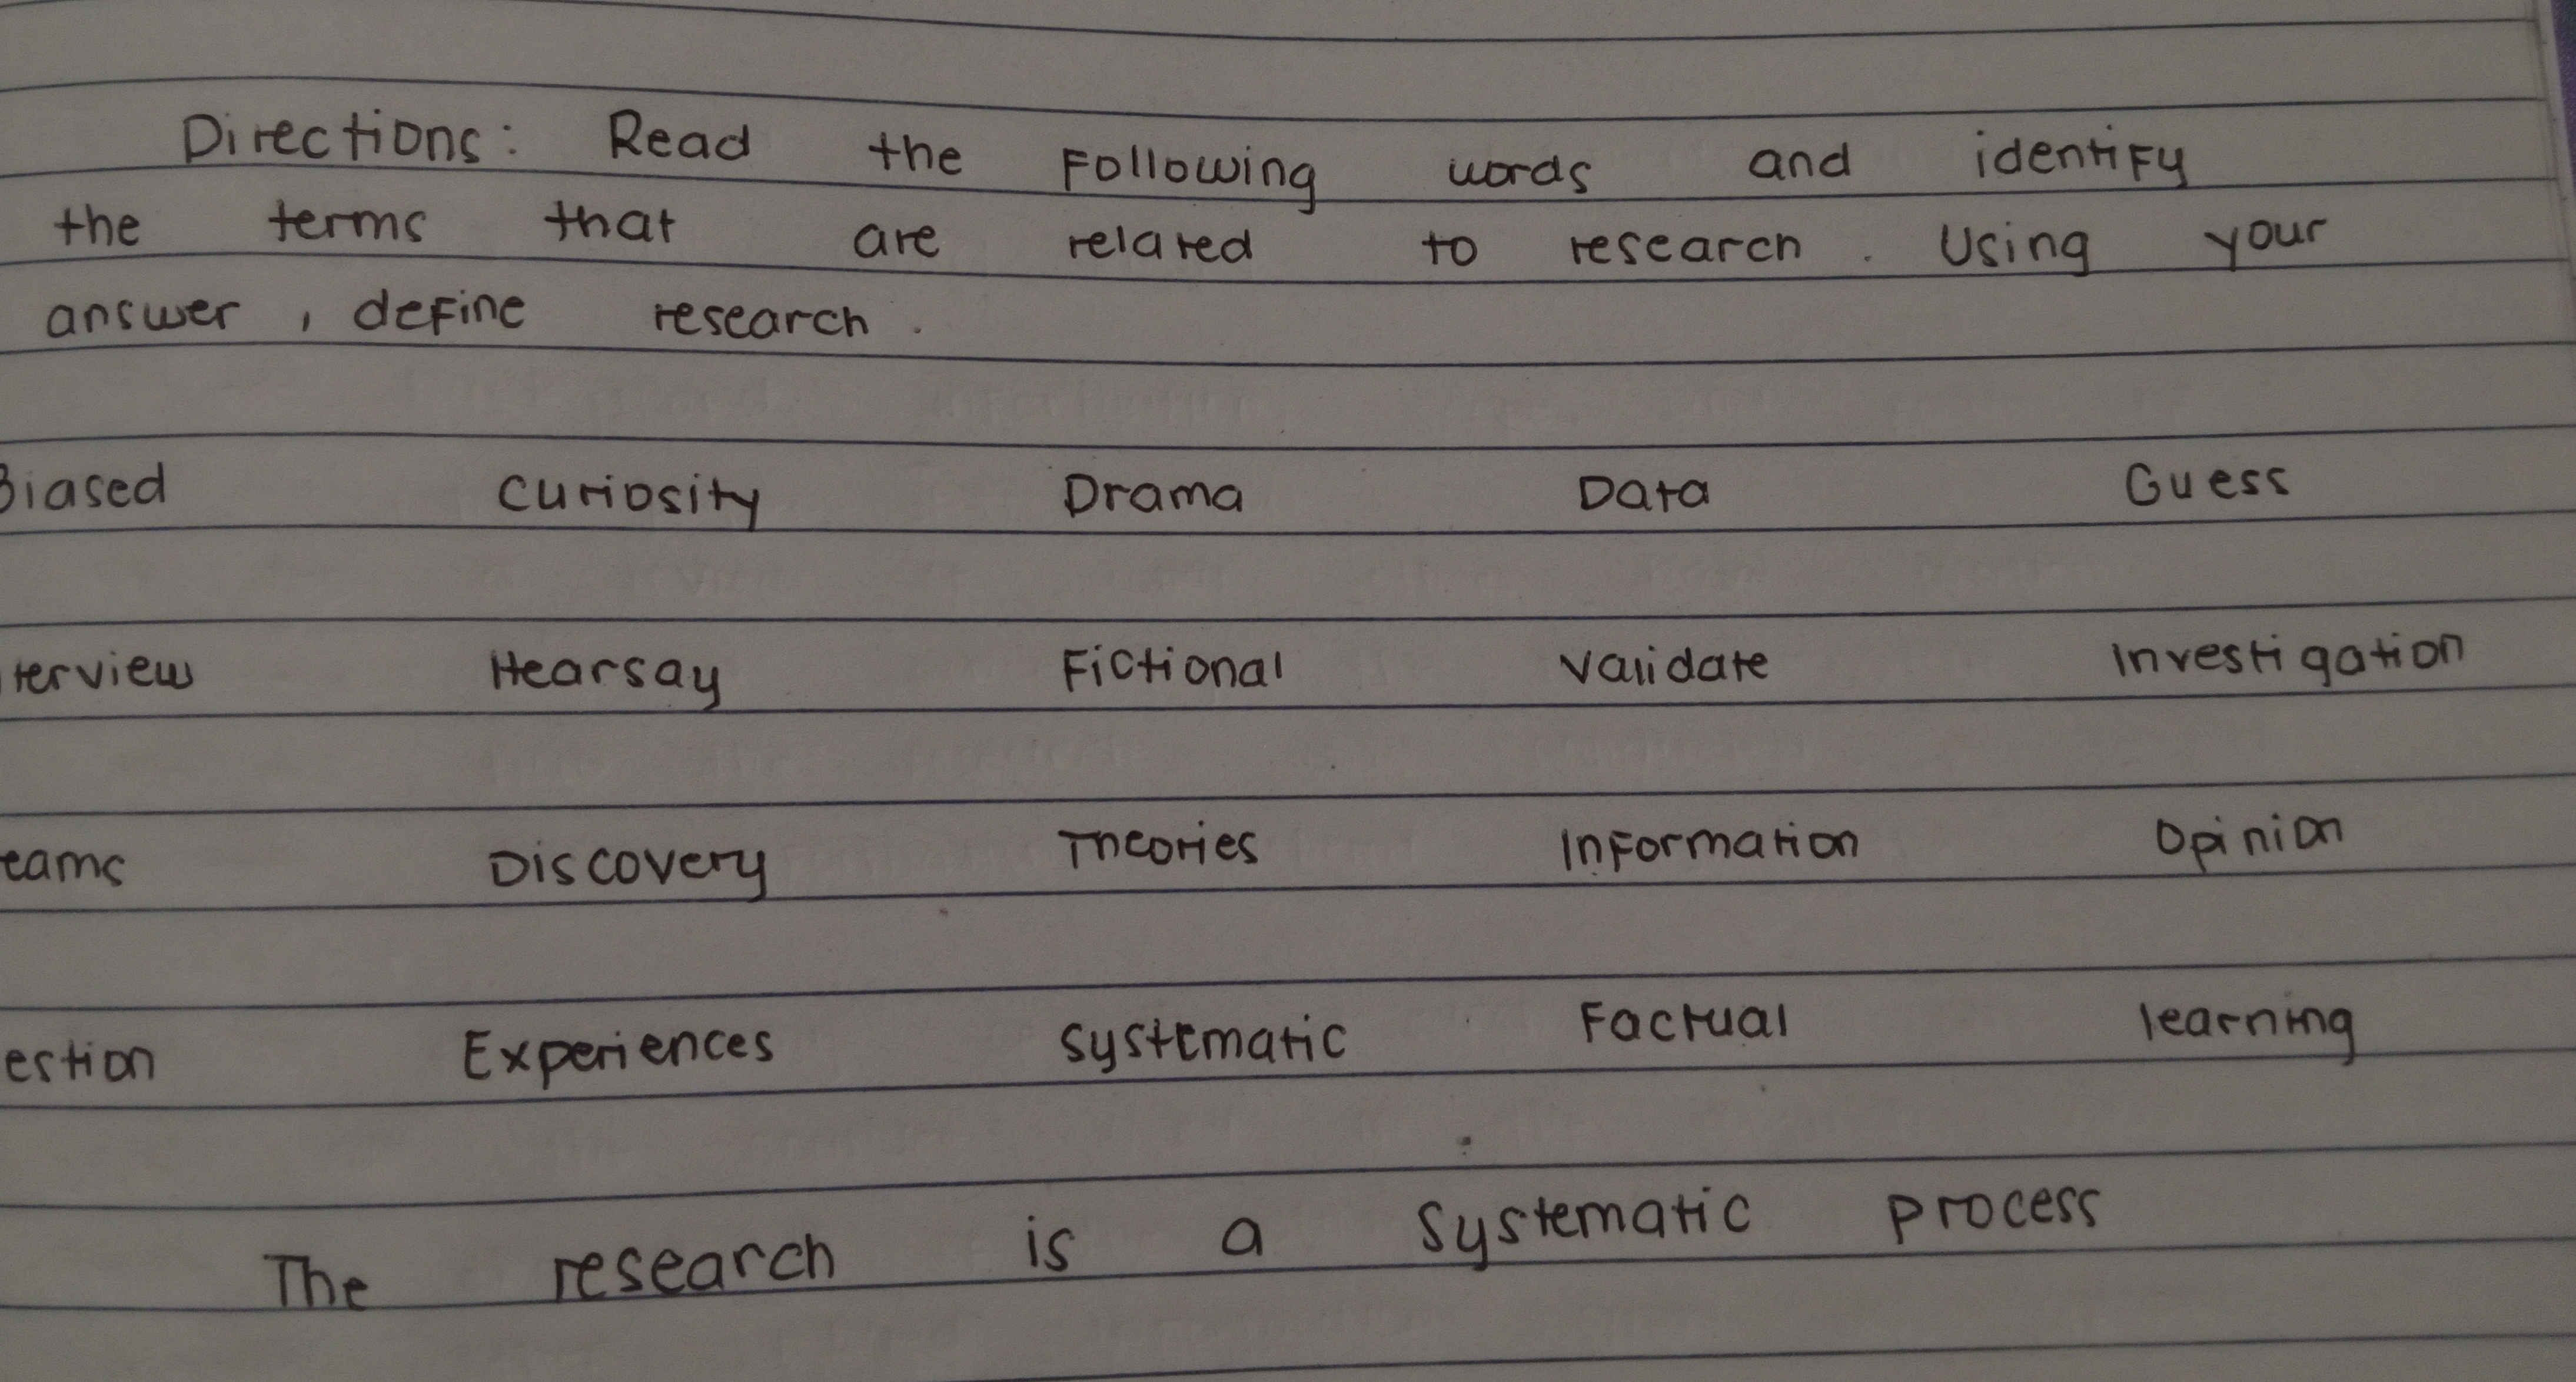 Directions: Read the Following words and identify
the terms that are related to research. Using your
answer, define research.
Biased Curiosity Drama Data Guess
terview Hearsay Fictional Validate Investigation
eams Discovery Theories Information Opinion
estion Experiences Systematic Factual learning
The research is a systematic process